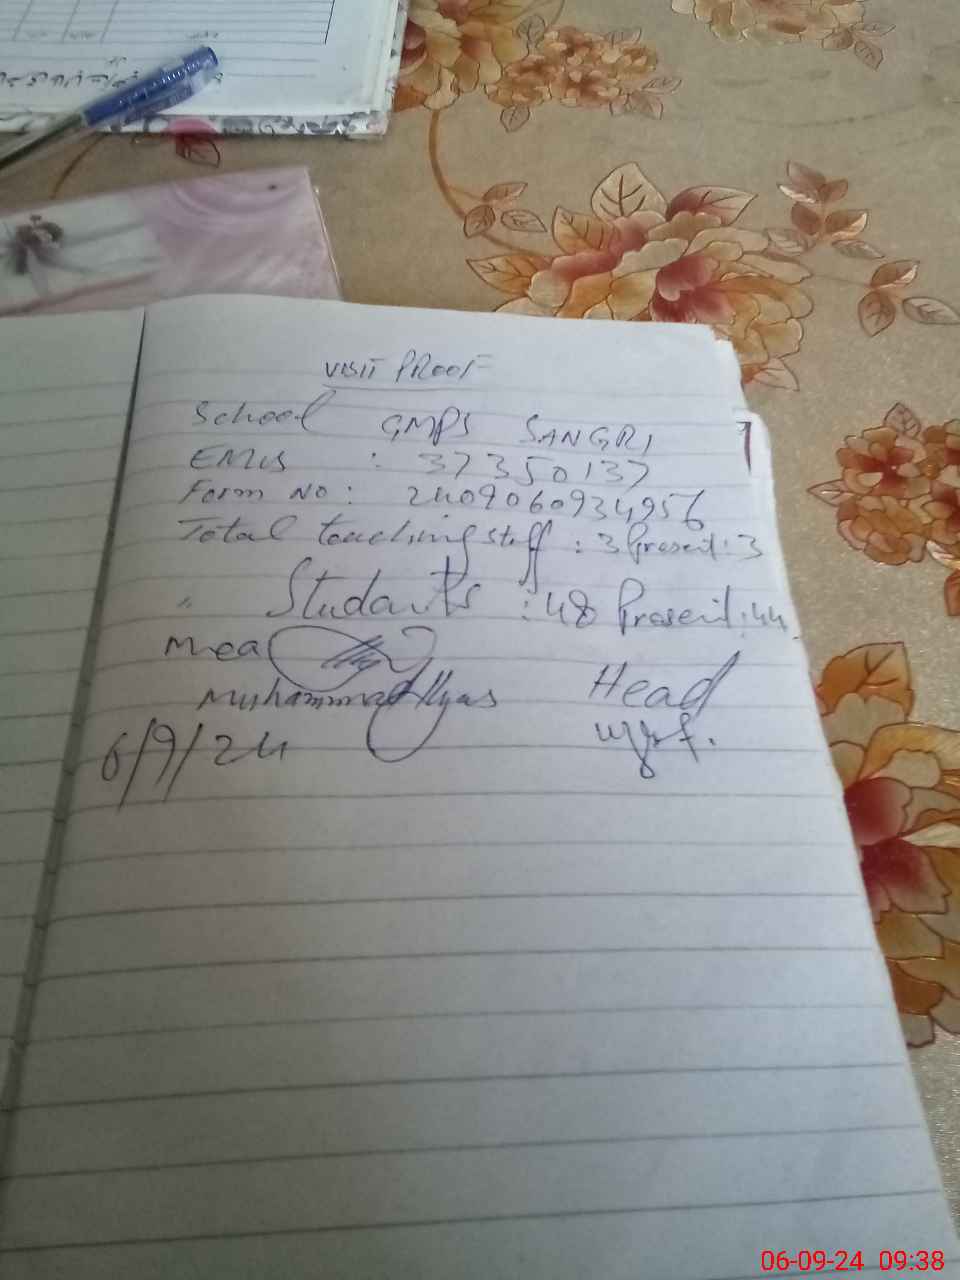 VISIT PROOF
School GMPS SANGRI
EMIS : 37350137
Form No : 2409060934956
Total teaching staff : 3 Present : 3
" Students : 48 Present : 44
Mea
Muhammad Ilyas Head
6/9/24
06-09-24 09:38